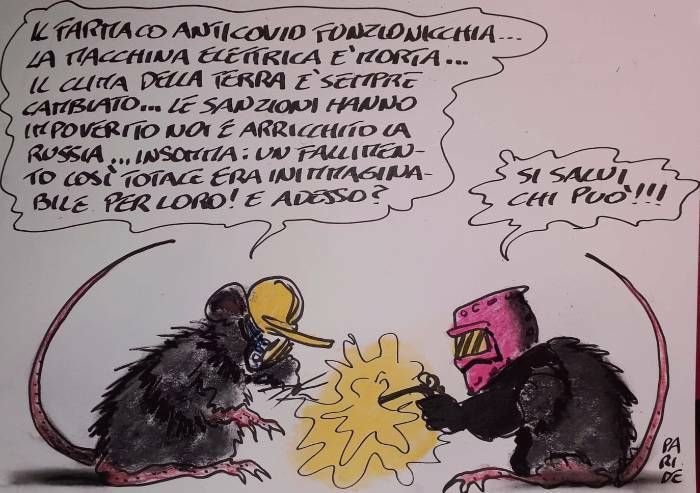 IL FARMACO ANTICOVID FUNZIONICCHIA...
LA MACCHINA ELETTRICA E' MORTA...
IL CLIMA DELLA TERRA E' SEMPRE
CAMBIATO... LE SANZIONI HANNO
IMPOVERITO NOI E ARRICCHITO LA
RUSSIA... INSOMMA: UN FALLIMEN-
TO COSÌ TOTALE ERA INIMMAGINA-
BILE PER LORO! E ADESSO?
SI SALVI
CHI PUÒ!!!
PA
RI
DE